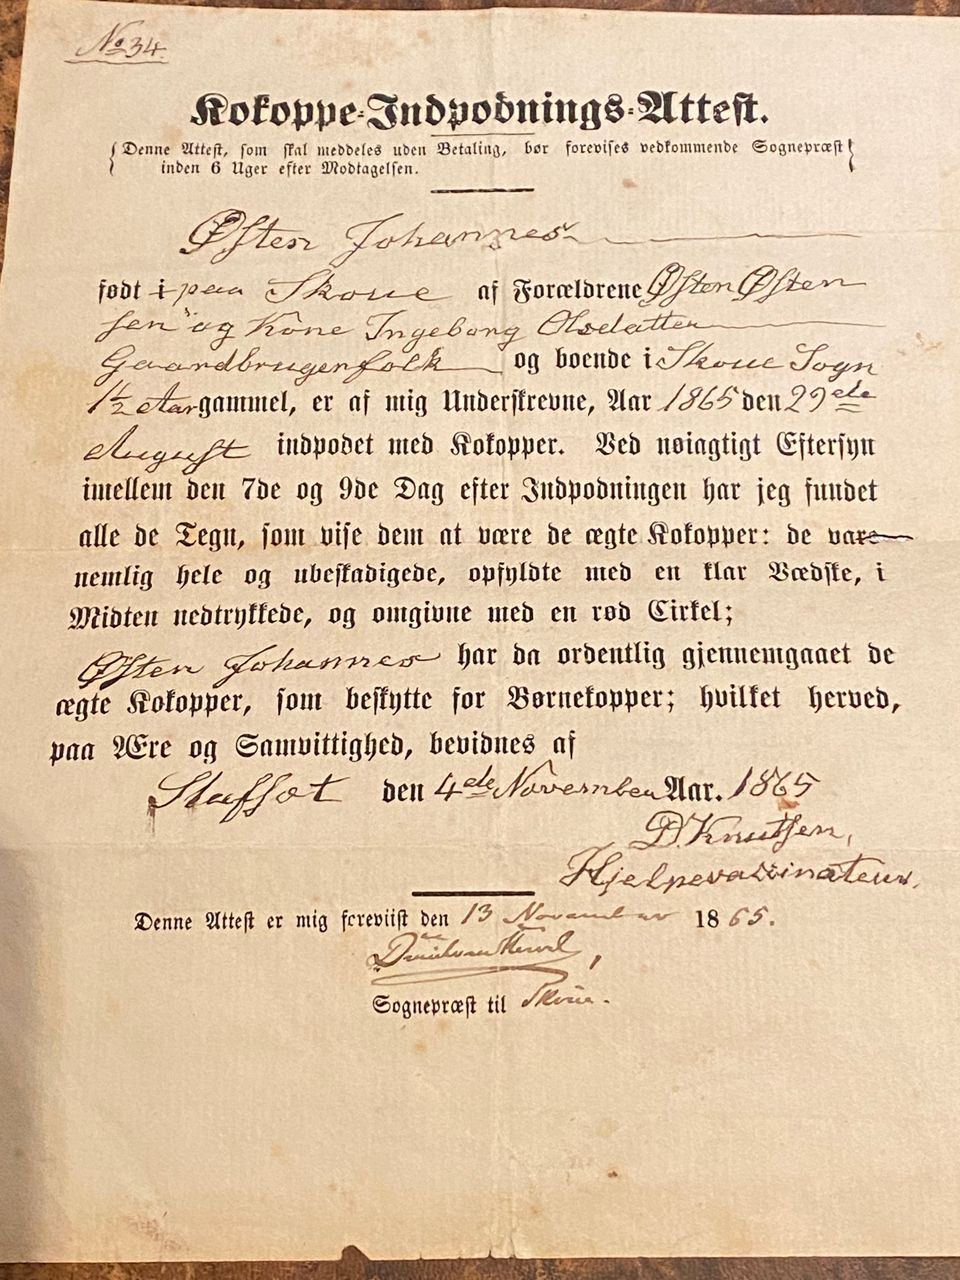 No 34.
Kokoppe-Indpodnings-Attest.
Denne Attest, som skal meddeles uden Betaling, bør forevises vedkommende Sognepræst
inden 6 Uger efter Modtagelsen.
Østen Johannes
født i paa Skoue af Forældrene Østen Østen
sen og Kone Ingeborg Olsdatter
Gaardbrugerfolk og boende i Skoue Sogn
1½ Aar gammel, er af mig Underskrevne, Aar 1865 den 29de
August indpodet med Kokopper. Ved nøiagtigt Eftersyn
imellem den 7de og 9de Dag efter Indpodningen har jeg fundet
alle de Tegn, som vise dem at være de ægte Kokopper: de vare
nemlig hele og ubeskadigede, opfyldte med en klar Vædske, i
Midten nedtrykkede, og omgivne med en rød Cirkel;
Østen Johannes har da ordentlig gjennemgaaet de
ægte Kokopper, som beskytte for Børnekopper; hvilket herved,
paa Ære og Samvittighed, bevidnes af
Slafsæt den 4de November Aar. 1865
D. Knutsen,
Hjelpevaccinateur.
Denne Attest er mig foreviist den 13 November 1865.
Sognepræst til Skoue.